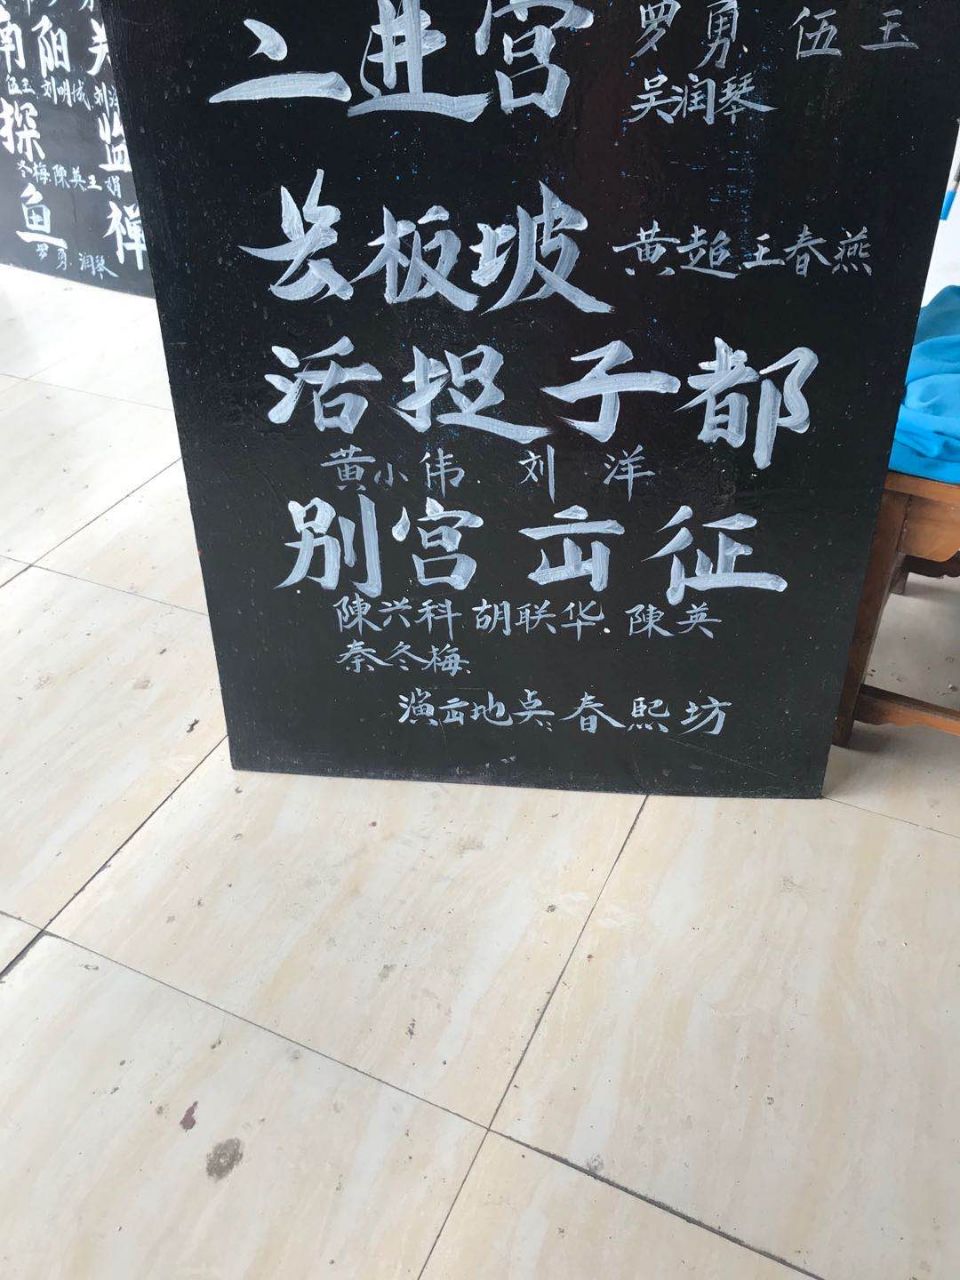 南阳关
伍玉 刘明成 刘
探 监
冬梅 陳英 王娟
鱼 禅
罗勇 润琴
二进宫 罗勇 伍玉
吴润琴
长板坡 黄超 王春燕
活捉子都
黄小伟 刘洋
别宫出征
陳兴科 胡联华 陳英
秦冬梅
演出地点 春熙坊